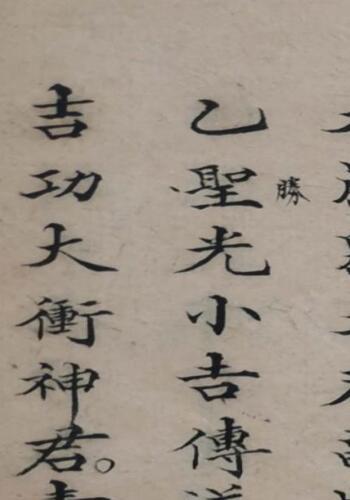 乙聖光小吉傳
勝
吉功大衝神君。